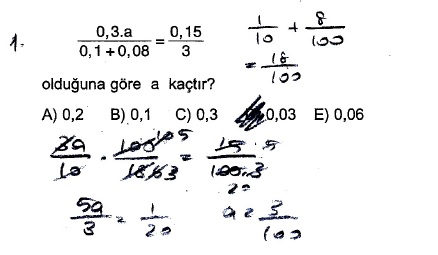 1. 0,3.a / 0,1 + 0,08 = 0,15 / 3
1/10 + 8/100
= 18/100
olduğuna göre a kaçtır?
A) 0,2 B) 0,1 C) 0,3 0,03 E) 0,06
3a/10 . 100/18 = 15/100.3
5a/3 = 1/20 a = 3/100